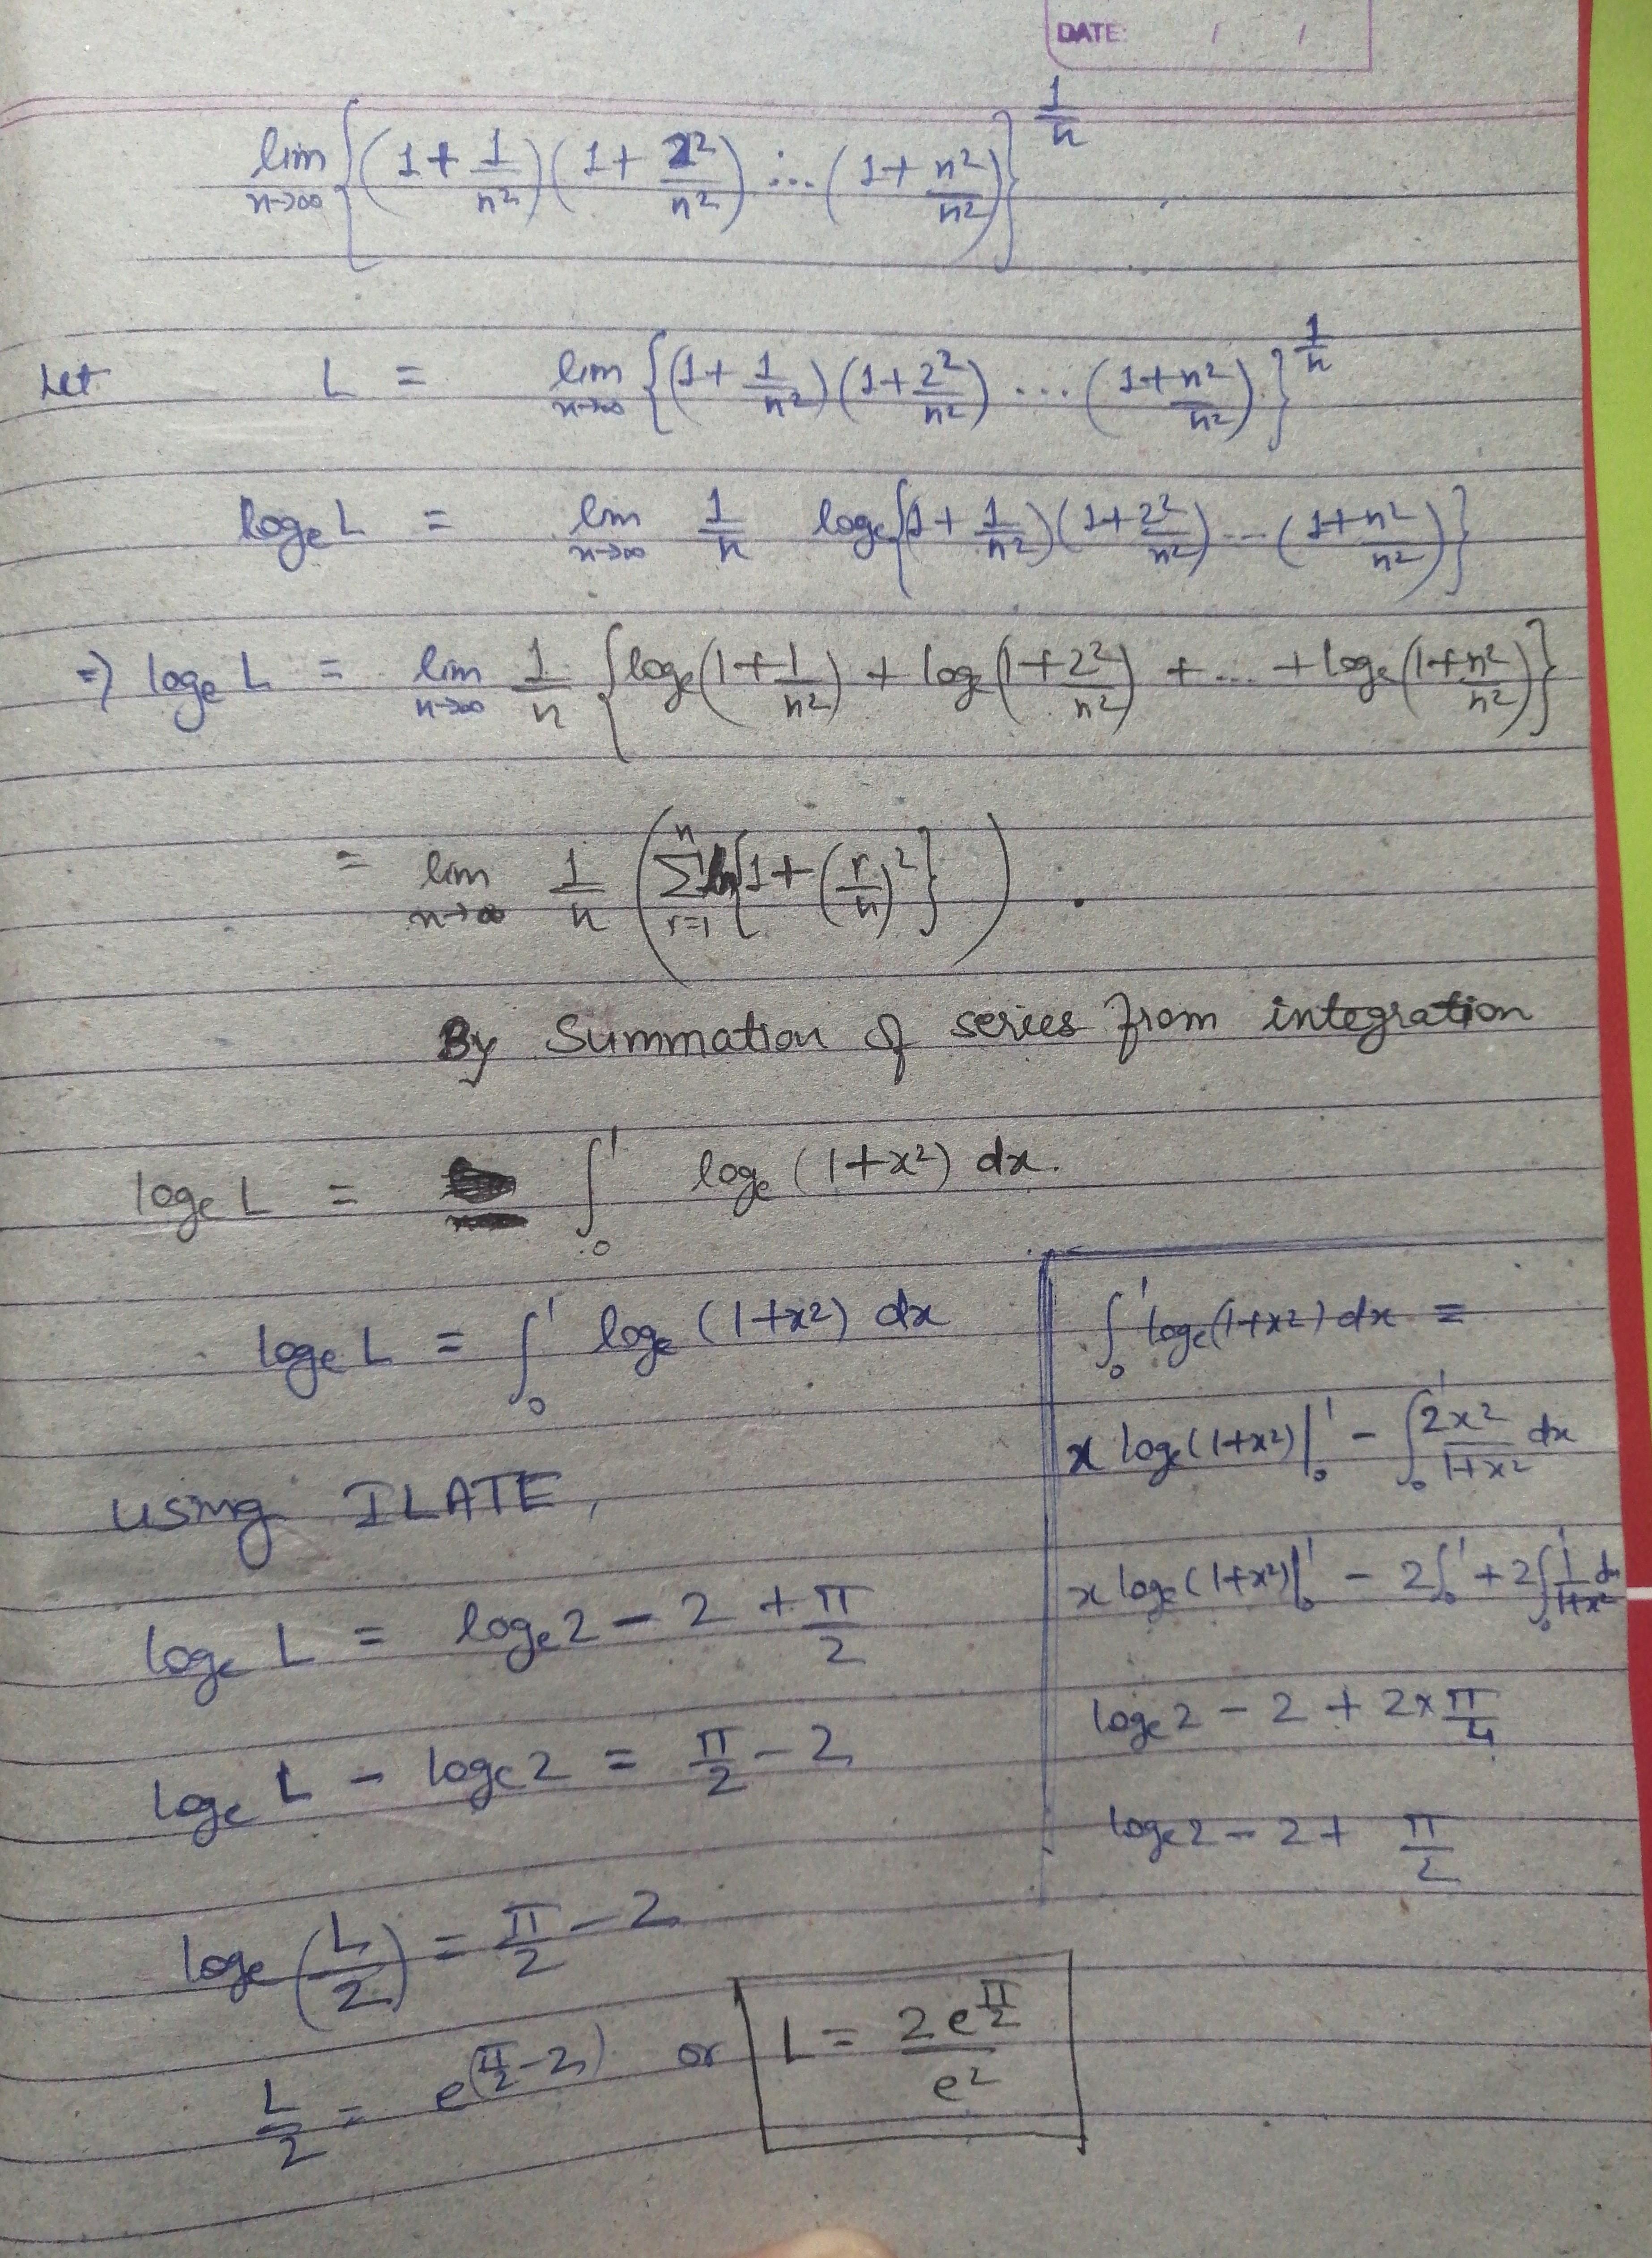 DATE: / /
lim n→∞ {(1 + 1/n²)(1 + 2²/n²) ... (1 + n²/n²)}^(1/n)
Let L = lim n→∞ {(1 + 1/n²)(1 + 2²/n²) ... (1 + n²/n²)}^(1/n)
logₑ L = lim n→∞ 1/n logₑ {(1 + 1/n²)(1 + 2²/n²) ... (1 + n²/n²)}
⇒) logₑ L = lim n→∞ 1/n {logₑ(1 + 1/n²) + logₑ(1 + 2²/n²) + ... + logₑ(1 + n²/n²)}
= lim n→∞ 1/n (∑_{r=1}^{n} ln{1 + (r/n)²})
By Summation of series from integration
logₑ L = ∫₀¹ logₑ (1+x²) dx.
logₑ L = ∫₀¹ logₑ (1+x²) dx
using ILATE,
logₑ L = logₑ 2 − 2 + π/2
logₑ L − logₑ 2 = π/2 − 2
logₑ (L/2) = π/2 − 2
L/2 = e^(π/2 − 2) or L = 2e^(π/2)/e²
∫₀¹ logₑ(1+x²) dx =
x logₑ(1+x²)|₀¹ − ∫₀¹ 2x²/(1+x²) dx
x logₑ(1+x²)|₀¹ − 2∫₀¹ + 2∫₀¹ 1/(1+x²) dx
logₑ 2 − 2 + 2 × π/4
logₑ 2 − 2 + π/2